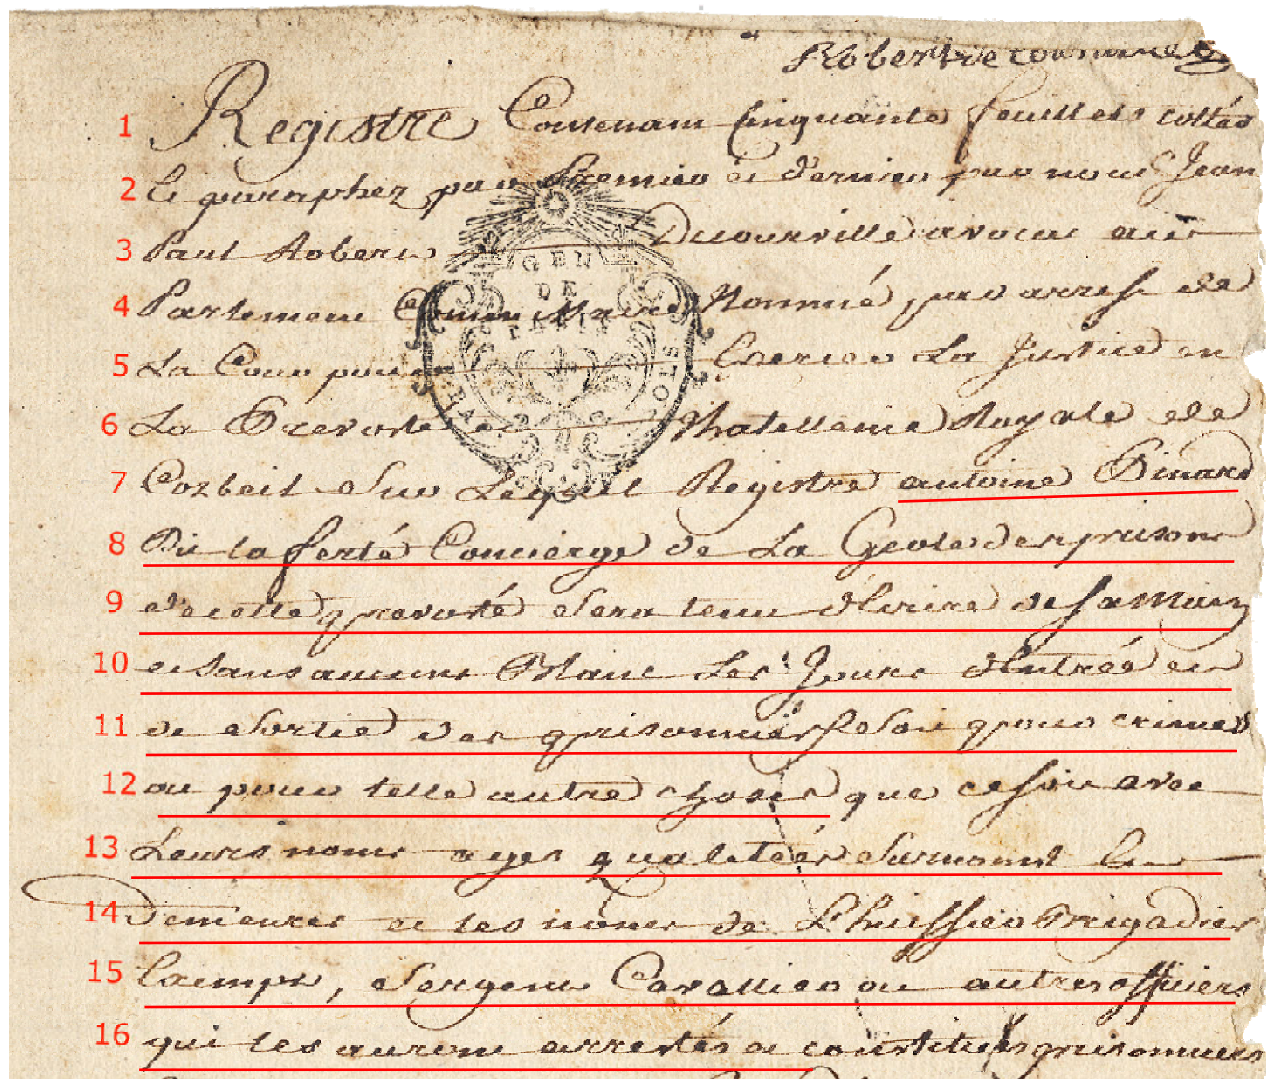 Robert De courville
1 Registre Contenant Cinquante feuillets cottés
2 Et paraphez par Premier et dernier par nous Jean
3 Paul Robert Decourville avocat au
4 Parlement Comme Maire Nommé par arrest de
5 La Cour pour Exercer La Justice en
6 La Prevosté et Chatellenie Royale de
7 Corbeil Sur Lequel Registre antoine Pinard
8 Dit la ferté Concierge de La Geole des prisons
9 de cette prevoté Sera tenu d'Ecrire de sa Main
10 et sans aucuns Blanc Les Jours d'Entrée et
11 de Sortie des prisonniers Soit pour crimes
12 ou pour telle autre choses que ce soit avec
13 Leurs noms ages qualitées Surnoms Et
14 demeures et les noms de L'huissier Brigadier
15 Exempt, Sergent Cavallier ou autres officiers
16 qui les auront arrestés et constitués prisonniers
GEN
DE
PARIS